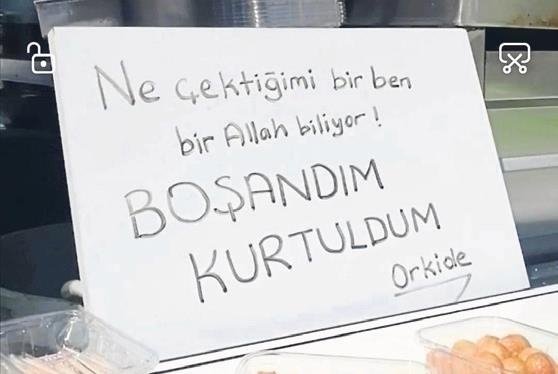 Ne çektiğimi bir ben
bir Allah biliyor!
BOŞANDIM
KURTULDUM
Orkide